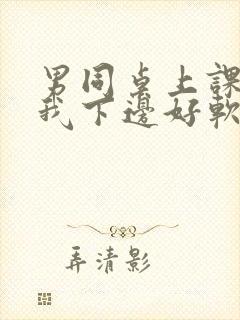 男同桌上課
我下邊好軟
弄清影